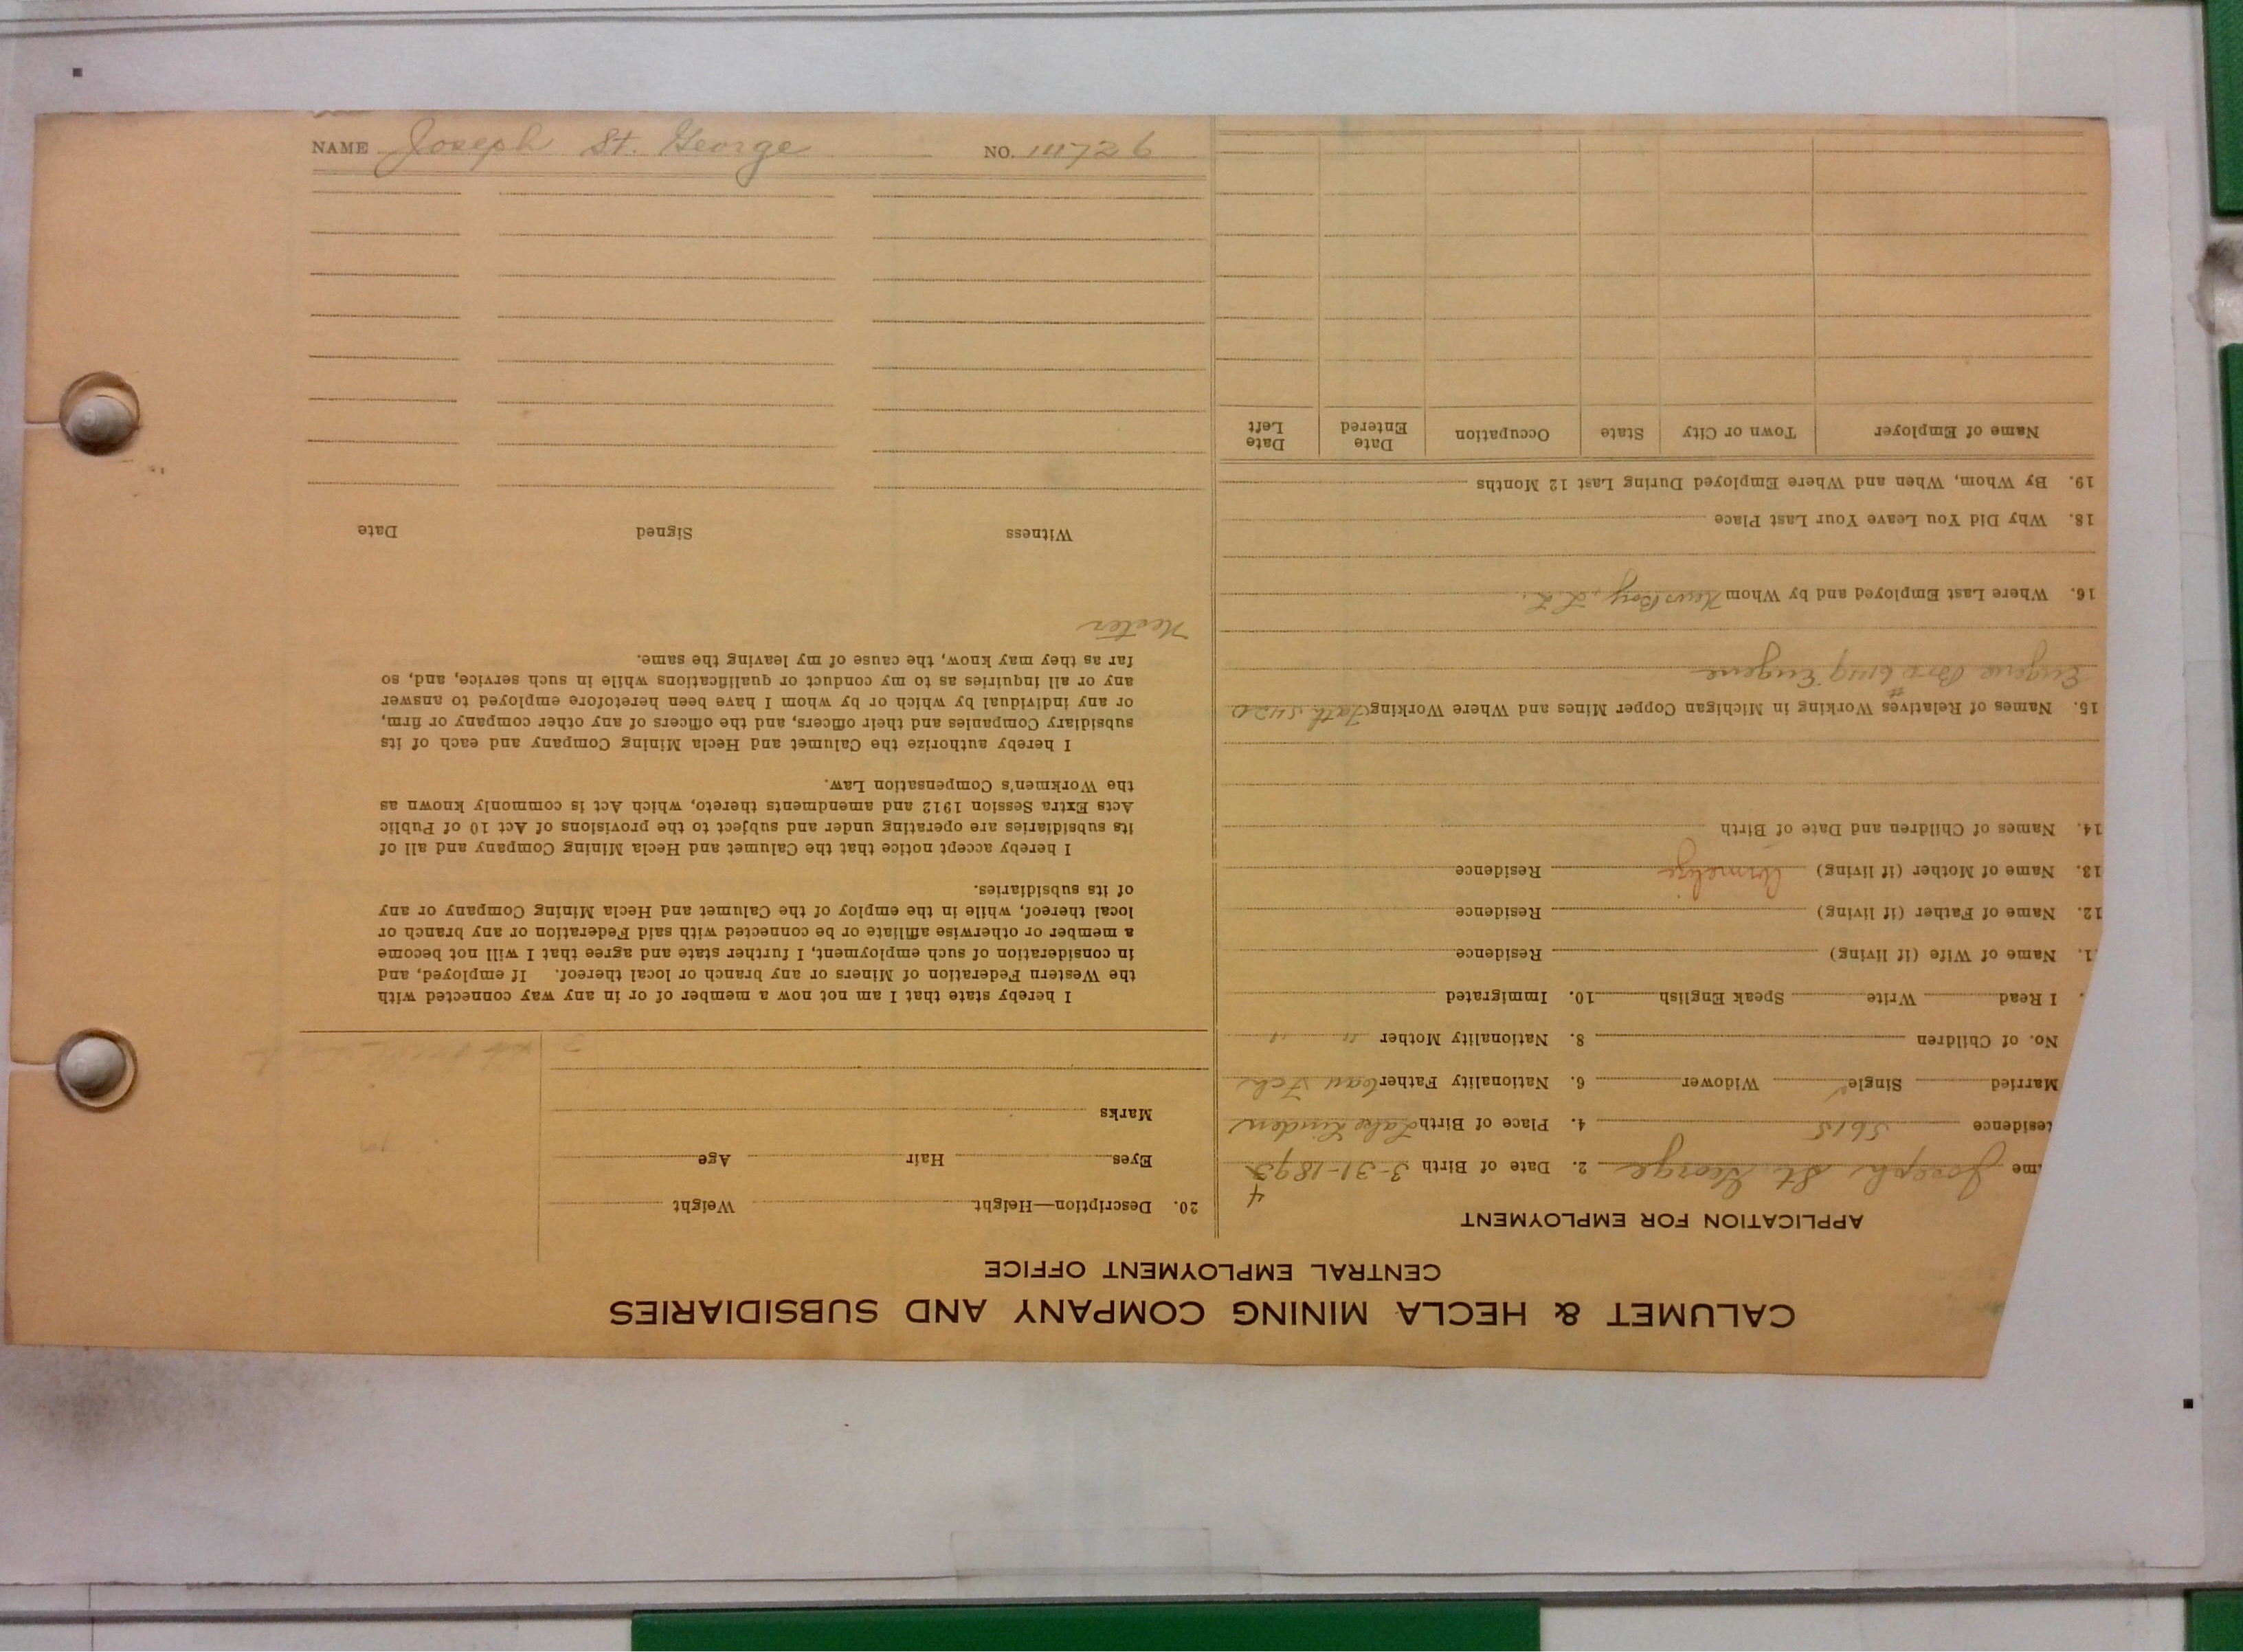 CALUMET & HECLA MINING COMPANY AND SUBSIDIARIES
CENTRAL EMPLOYMENT OFFICE
APPLICATION FOR EMPLOYMENT
me Joseph St. George 2. Date of Birth 3-31-1893 4
esidence 5615 4. Place of Birth Lake Linden
Married Single ✓ Widower 6. Nationality Father Can Fch
No. of Children 8. Nationality Mother " "
. I Read Write Speak English 10. Immigrated
1. Name of Wife (if living) Residence
12. Name of Father (if living) Residence
13. Name of Mother (if living) Residence
14. Names of Children and Date of Birth
15. Names of Relatives Working in Michigan Copper Mines and Where Working Fath 5420
Eugene Bro Eugene
16. Where Last Employed and by Whom News Boy, L. L.
18. Why Did You Leave Your Last Place
19. By Whom, When and Where Employed During Last 12 Months
Name of Employer Town or City State Occupation Date Entered Date Left
20. Description—Height Weight
Eyes Hair Age
Marks
I hereby state that I am not now a member of or in any way connected with
the Western Federation of Miners or any branch or local thereof. If employed, and
in consideration of such employment, I further state and agree that I will not become
a member or otherwise affiliate or be connected with said Federation or any branch or
local thereof, while in the employ of the Calumet and Hecla Mining Company or any
of its subsidiaries.
I hereby accept notice that the Calumet and Hecla Mining Company and all of
its subsidiaries are operating under and subject to the provisions of Act 10 of Public
Acts Extra Session 1912 and amendments thereto, which Act is commonly known as
the Workmen's Compensation Law.
I hereby authorize the Calumet and Hecla Mining Company and each of its
subsidiary Companies and their officers, and the officers of any other company or firm,
or any individual by which or by whom I have been heretofore employed to answer
any or all inquiries as to my conduct or qualifications while in such service, and, so
far as they may know, the cause of my leaving the same.
Witness Signed Date
NAME Joseph St. George NO. 111726